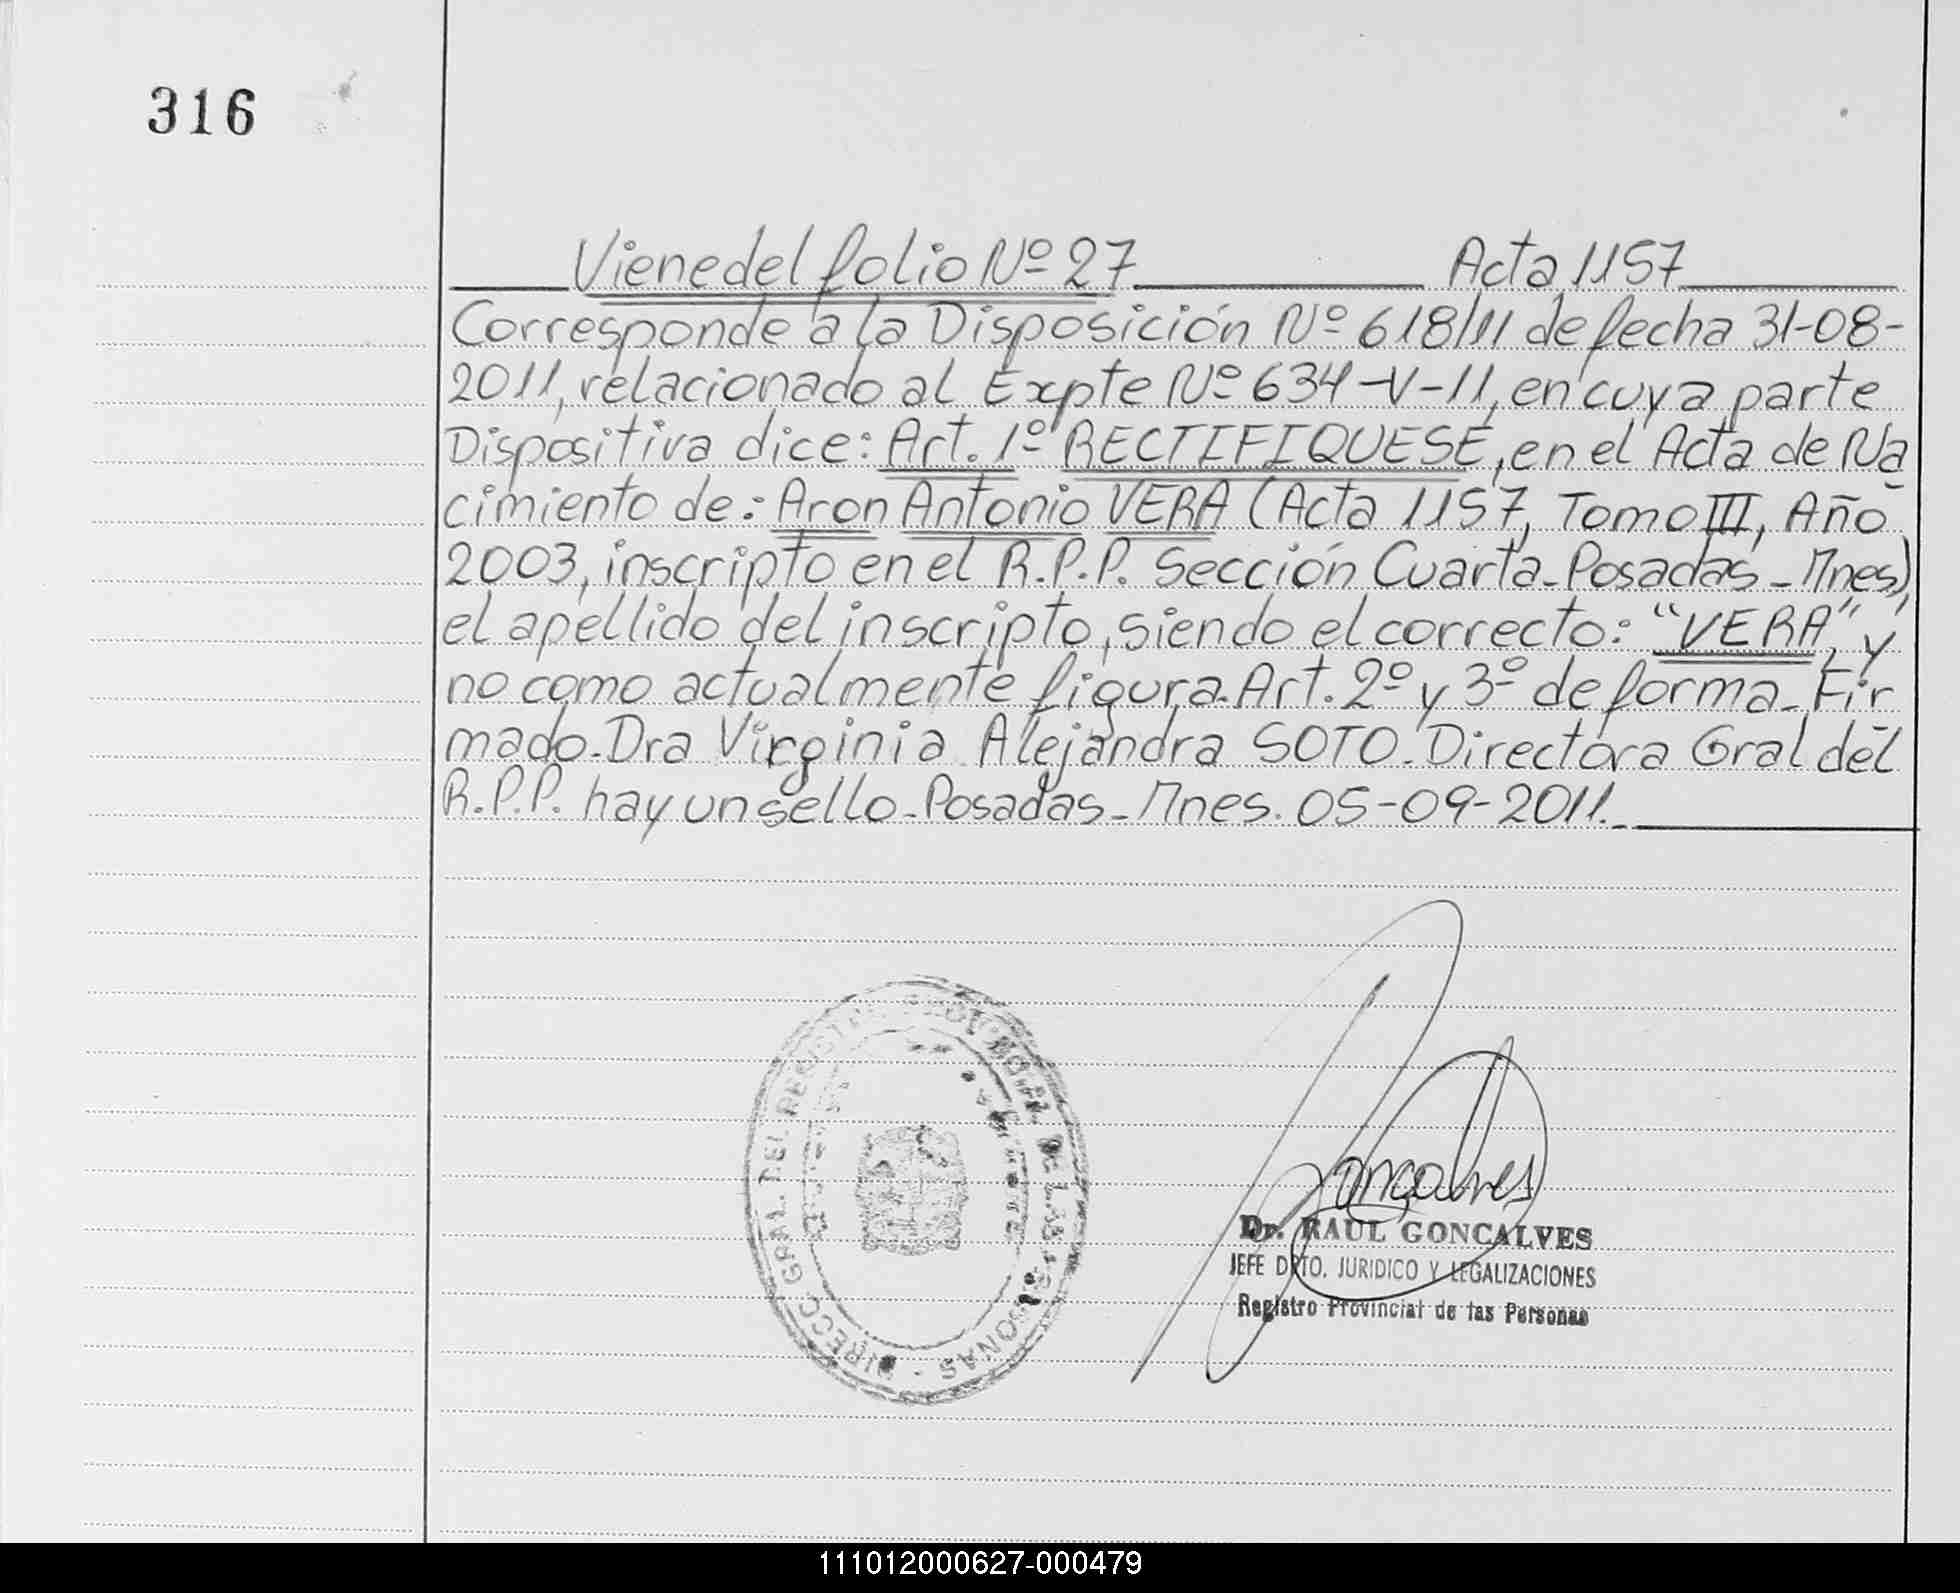 316
Viene del folio Nº 27 Acta 1157
Corresponde a la Disposición Nº 618/11 de fecha 31-08-
2011, relacionado al Expte Nº 634-V-11, en cuya parte
Dispositiva dice: Art. 1º RECTIFIQUESE, en el Acta de Na
cimiento de: Aron Antonio VERA (Acta 1157, Tomo III, Año
2003, inscripto en el R.P.P. Sección Cuarta-Posadas-Mnes),
el apellido del inscripto, siendo el correcto: "VERA", y
no como actualmente figura. Art. 2º y 3º de forma-Fir
mado-Dra Virginia Alejandra SOTO-Directora Gral del
R.P.P. hay un sello-Posadas-Mnes. 05-09-2011.-
DIRECC. GRAL. DEL REGISTRO PROVINCIAL DE LAS PERSONAS -
Goncalves
Dr. RAUL GONCALVES
JEFE DPTO. JURIDICO Y LEGALIZACIONES
Registro Provincial de las Personas
111012000627-000479